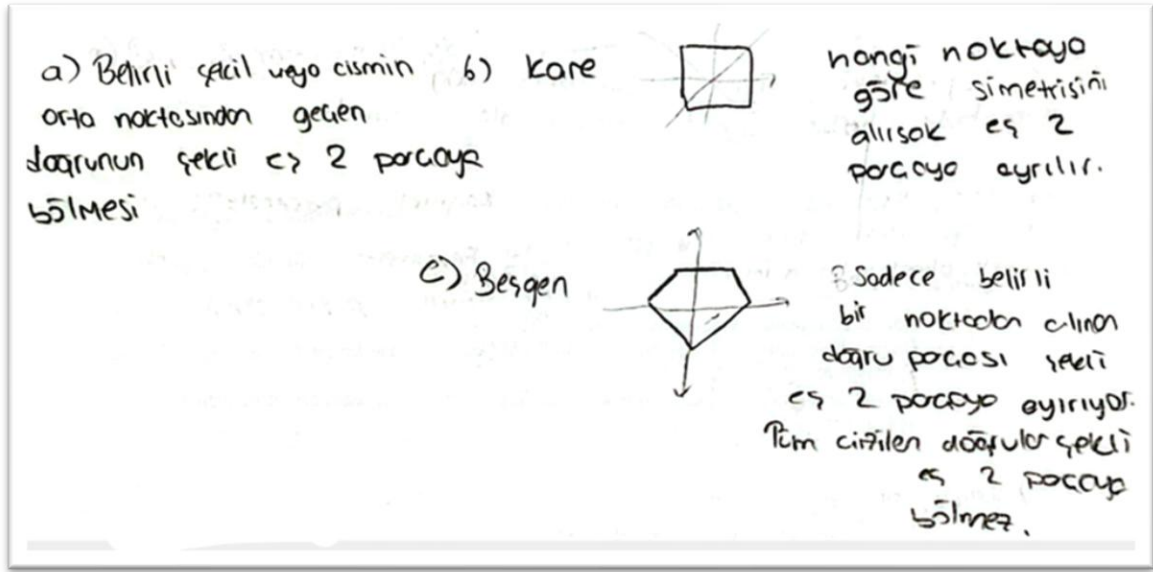 a) Belirli şekil veya cismin
orta noktasından geçen
doğrunun şekli eş 2 parçaya
bölmesi
b) Kare
hangi noktaya
göre simetrisini
alırsak eş 2
parçaya ayrılır.
c) Beşgen
Sadece belirli
bir noktadan alınan
doğru parçası şekli
eş 2 parçaya ayırıyor.
Tüm çizilen doğrular şekli
eş 2 parçaya
bölmez.